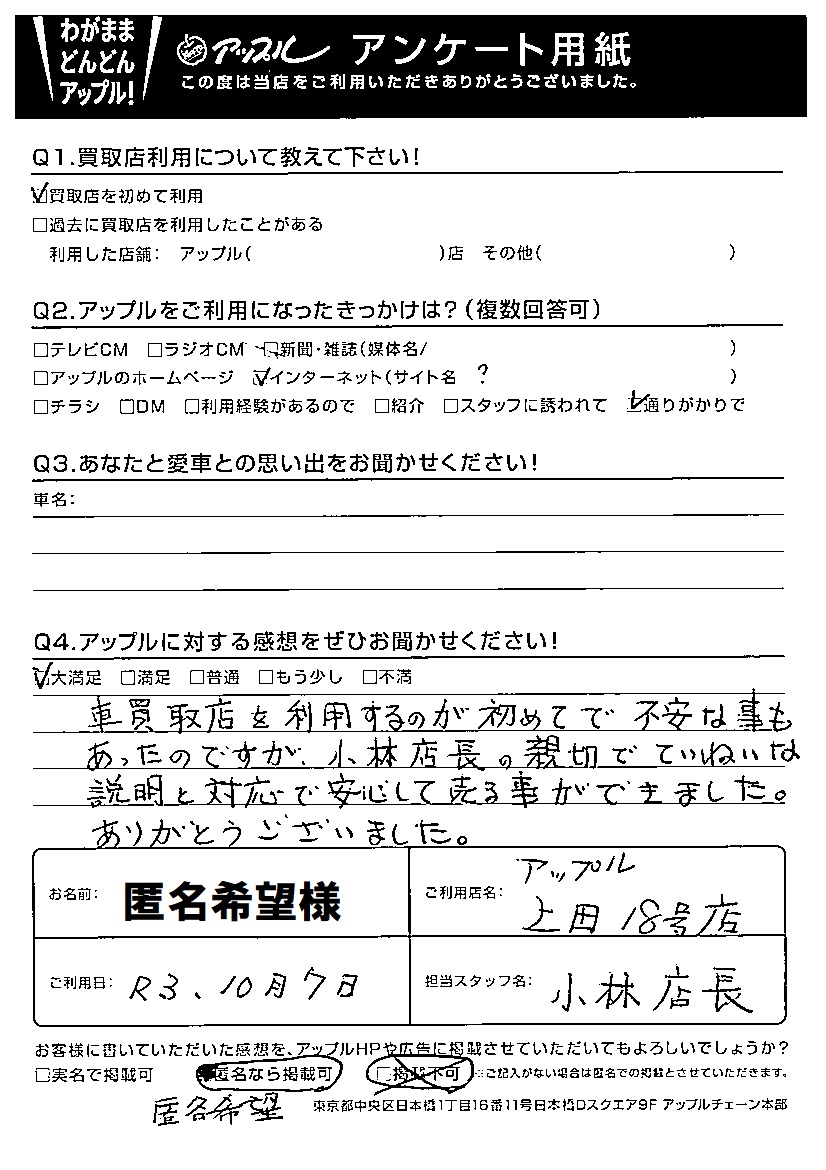 わがまま
どんどん
アップル!
アップル アンケート用紙
この度は当店をご利用いただきありがとうございました。
Q1.買取店利用について教えて下さい!
☑買取店を初めて利用
□過去に買取店を利用したことがある
利用した店舗: アップル( )店 その他( )
Q2.アップルをご利用になったきっかけは?(複数回答可)
□テレビCM □ラジオCM □新聞・雑誌(媒体名/ )
□アップルのホームページ ☑インターネット(サイト名 ? )
□チラシ □DM □利用経験があるので □紹介 □スタッフに誘われて ☑通りがかりで
Q3.あなたと愛車との思い出をお聞かせください!
車名:
Q4.アップルに対する感想をぜひお聞かせください!
☑大満足 □満足 □普通 □もう少し □不満
車買取店を利用するのが初めてで不安な事も
あったのですが、小林店長の親切でていねいな
説明と対応で安心して売る事ができました。
ありがとうございました。
お名前: 匿名希望様
ご利用店名: アップル
上田18号店
ご利用日: R3、10月7日
担当スタッフ名: 小林店長
お客様に書いていただいた感想を、アップルHPや広告に掲載させていただいてもよろしいでしょうか?
□実名で掲載可 ■匿名なら掲載可 □掲載不可 ※ご記入がない場合は匿名での掲載とさせていただきます。
匿名希望
東京都中央区日本橋1丁目16番11号日本橋Dスクエア9F アップルチェーン本部